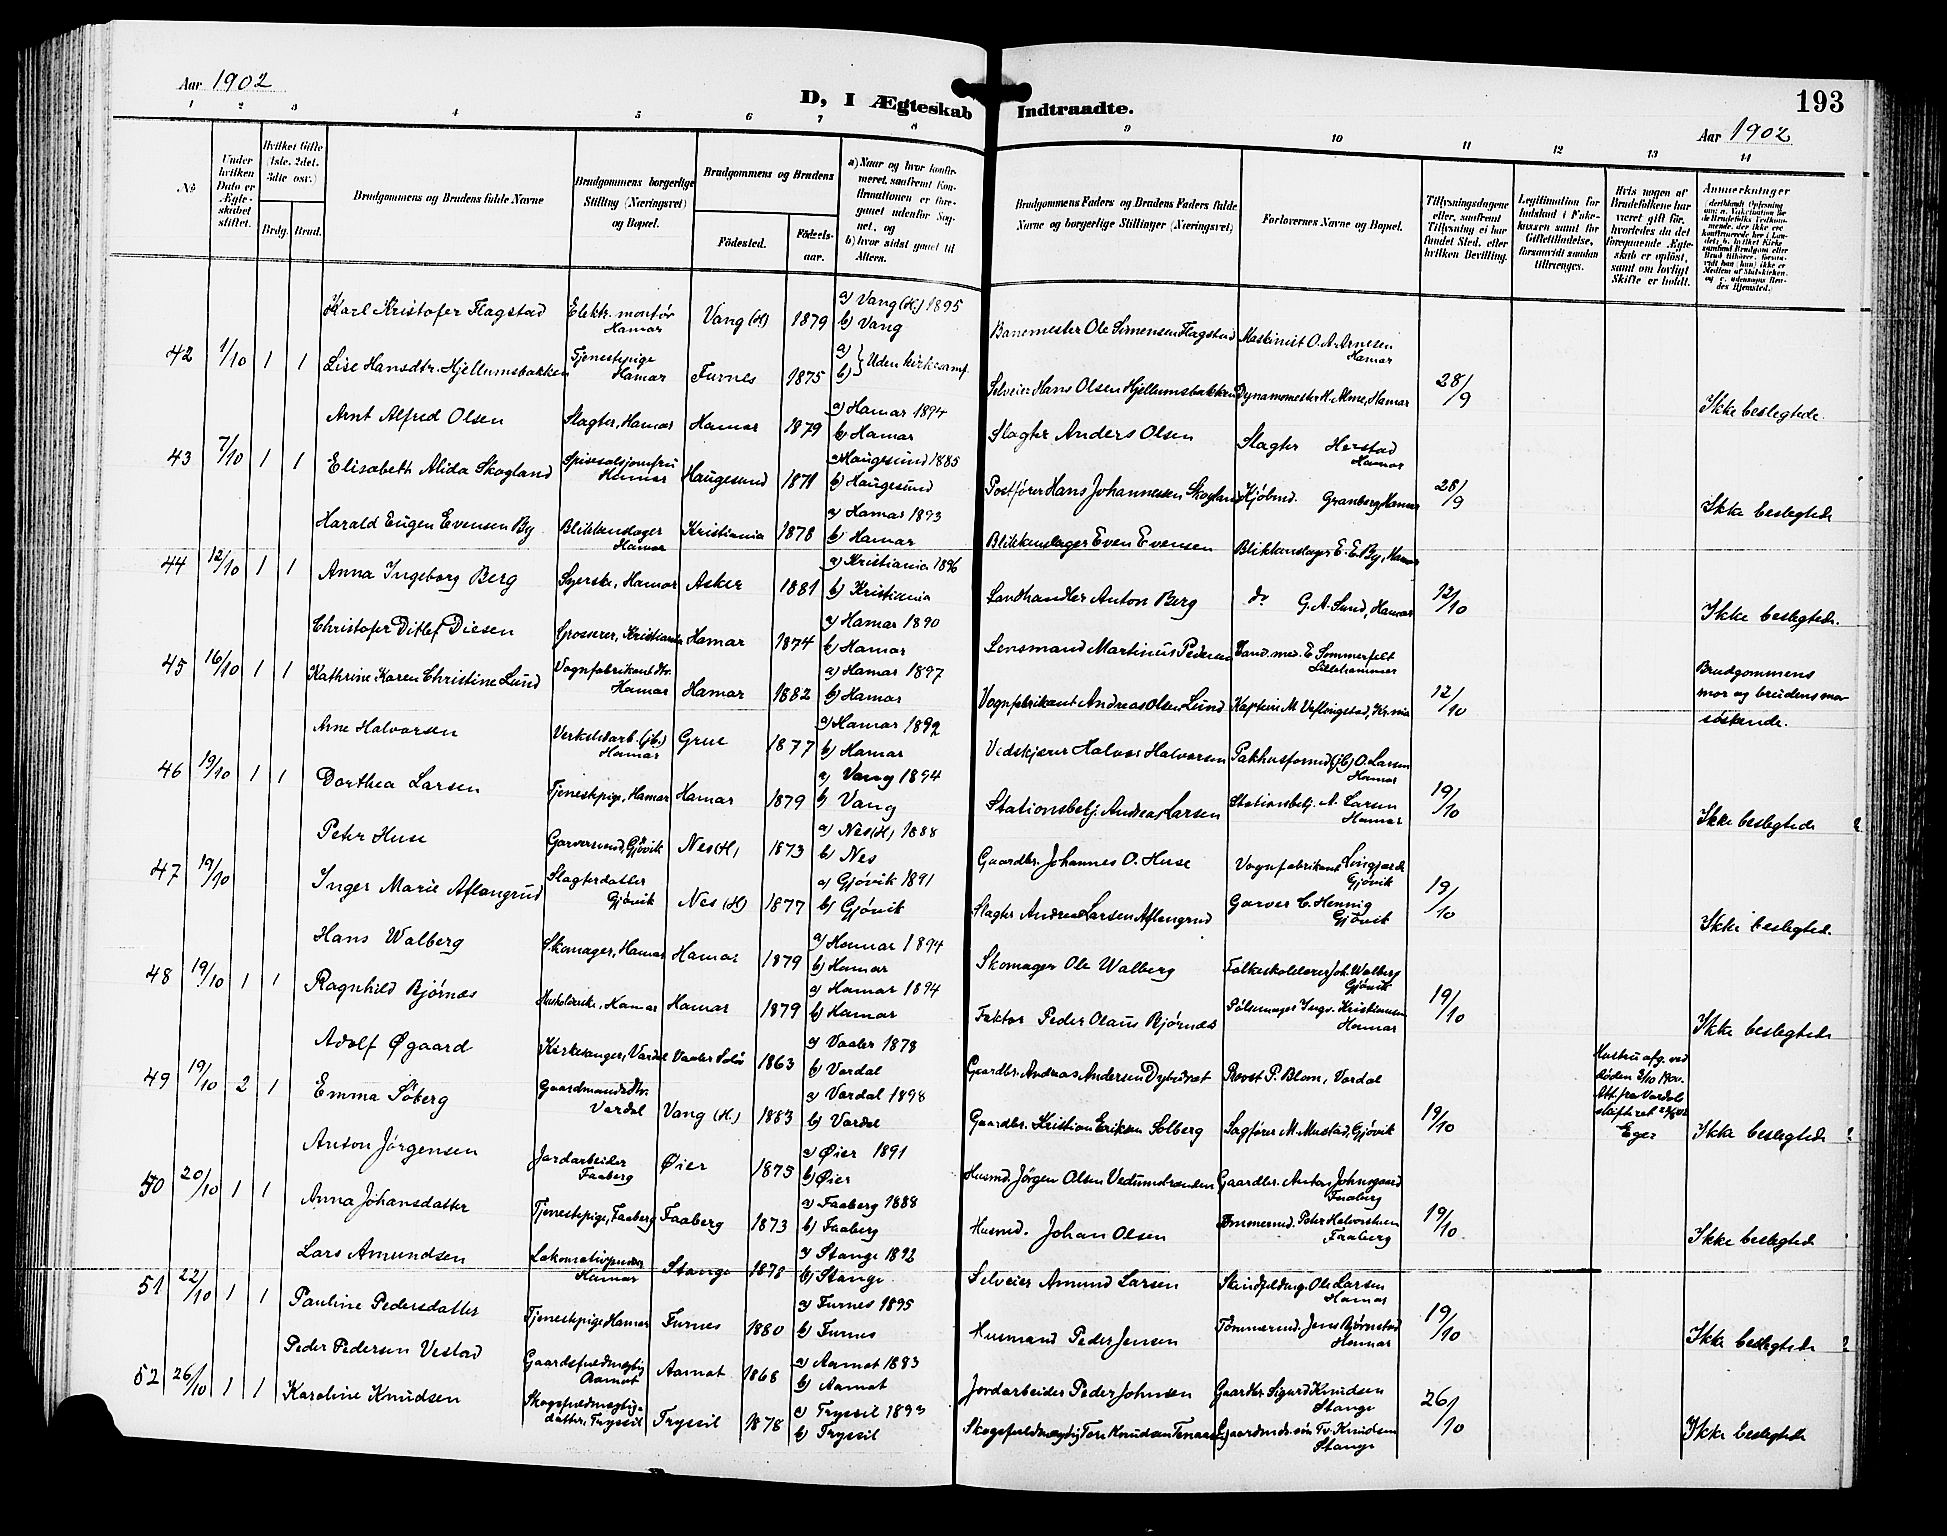 Aar 1902
D, I Ægteskab Indtraadte.
193
Aar 1902
1 2 3 4 5 6 7 8 9 10 11 12 13 14
№
Under hvilken Dato er Ægteskabet stiftet.
Hvilket Gifte (1ste. 2det. 3die osv.)
Brdg. Brud.
Brudgommens og Brudens fulde Navne
Brudgommens borgerlige Stilling (Næringsvei) og Bopæl.
Brudgommens og Brudens
Fødested.
Fødselsaar.
a) Naar og hvor konfirmeret, saafremt Konfirmationen er foregaaet udenfor Sognet, og
b) hvor sidst gaaet til Alters.
Brudgommens Faders og Brudens Faders fulde Navne og borgerlige Stillinger (Næringsvei)
Forlovernes Navne og Bopæl.
Tillysningsdagene eller, saafremt Tillysning ei har fundet Sted, efter hvilken Bevilling.
Legitimation for Indskud i Enkekassen samt for Giftetilladelse, forsaavidt saadan tiltrænges.
Hvis nogen af Brudefolkene har været gift før, hvorledes da det foregaaende Ægteskab er opløst, samt om lovligt Skifte er holdt.
Anmerkninger
42 1/10 1 1
Karl Kristofer Flagstad Elektr. montør Hamar Vang (H) 1879 a) Vang (H.) 1895 b) Vang Banemester Ole Simensen Flagstad Maskinist O. A. Arnesen Hamar
Lise Hansdtr. Hjellumsbakken Tjenestepige Hamar Furnes 1875 a) b) Uden kirkesamf. Selveier Hans Olsen Hjellumsbakken Dynamomester M. Alme, Hamar 28/9 Ikke beslegtede.
43 7/10 1 1
Arnt Alfred Olsen Slagter, Hamar Hamar 1879 a) Hamar 1894 b) Hamar Slagter Anders Olsen Slagter Herstad Hamar
Elisabeth Alida Skogland Spisesalsjomfru Hamar Haugesund 1871 a) Haugesund 1885 b) Haugesund Postfører Hans Johannesen Skogland Kjøbmd. Granberg, Hamar 28/9 Ikke beslegtede
44 12/10 1 1
Harald Eugen Evensen By Blikkenslager Hamar Kristiania 1878 a) Hamar 1893 b) Hamar Blikkenslager Even Evensen Blikkenslager E. E. By, Hamar
Anna Ingeborg Berg Syerske, Hamar Asker 1881 a) Kristiania 1896 b) Kristiania Landhandler Anton Berg do G. A. Lund, Hamar 12/10 Ikke beslegtede.
45 16/10 1 1
Christofer Ditlef Diesen Grosserer, Kristiania Hamar 1874 a) Hamar 1890 b) Hamar Lensmand Martinus Pedersen Cand. med. E. Sommerfelt Lillehammer
Kathrine Karen Christine Lund Vognfabrikant dtr. Hamar Hamar 1882 a) Hamar 1897 b) Hamar Vognfabrikant Andreas Olsen Lund Kaptein M. Veflingstad, Kr.nia 12/10 Brudgommens mor og brudens mor søskende.
46 19/10 1 1
Arne Halvorsen Verkstedarb. (jb.) Hamar Grue 1877 a) Hamar 1892 b) Hamar Vedskjærer Halvor Halvorsen Pakhusformd (jb) O. Larsen Hamar
Dorthea Larsen Tjenestepige, Hamar Hamar 1879 a) Vang 1894 b) Vang Stationsbetj. Andreas Larsen Stationsbetj. A. Larsen Hamar 19/10 Ikke beslegtede
47 19/10
Peter Huse Garversvend, Gjøvik Nes (H) 1873 a) Nes (H) 1888 b) Nes Gaardbr. Johannes O. Huse Vognfabrikant Lingjærde Gjøvik
Inger Marie Aflangrud Slagterdatter Gjøvik Nes (H) 1877 a) Gjøvik 1891 b) Gjøvik Slagter Andreas Larsen Aflangrud Garver C. Hennig Gjøvik 19/10 Ikke beslegtede.
48 19/10 1 1
Hans Walberg Skomager, Hamar Hamar 1879 a) Hamar 1894 b) Hamar Skomager Ole Walberg Folkeskolelærer Joh. Walberg Gjøvik
Ragnhild Bjørnæs Husholderske, Hamar Hamar 1879 a) Hamar 1894 b) Hamar Faktor Peder Olaus Bjørnæs Pølsemager Ingv. Kristiansen Hamar 19/10 Ikke beslegtede
49 19/10 2 1
Adolf Øgaard Kirkesanger, Vardal Vaaler Solør 1863 a) Vaaler 1878 b) Vardal Gaardbr. Andreas Andersen Provst P. Blom, Vardal
Emma Solberg Gaardmandsdtr. Vardal Vang (H.) 1883 a) Vardal 1898 b) Vardal Gaardbr. Kristian Eriksen Solberg Sagfører M. Mustad, Gjøvik 19/10 Hustru afg. ved døden Att. fra Vardal skifteret Eger Ikke beslegtede
50 20/10 1 1
Anton Jørgensen Jordarbeider Faaberg Øier 1875 a) Øier 1891 b) Øier Husmd. Jørgen Olsen Gaardbr. Anton Johnsgaard Faaberg
Anna Johansdatter Tjenestepige, Faaberg Faaberg 1873 a) Faaberg 1888 b) Faaberg Husmd. Johan Olsen Tømmermd. Peter Halvorsen Faaberg 19/10 Ikke beslegtede
51 22/10 1 1
Lars Amundsen Lokomotivpudser Hamar Stange 1878 a) Stange 1892 b) Stange Selveier Amund Larsen Skindfeldmgr. Ole Larsen Hamar
Pauline Pedersdatter Tjenestepige Hamar Furnes 1880 a) Furnes 1895 b) Furnes Husmand Peder Jensen Tømmermd. Jens Bjørnstad Hamar 19/10 Ikke beslegtede
52 26/10 1 1
Peder Pedersen Vestad Gaardsfuldmægtig Aamot Aamot 1868 a) Aamot 1883 b) Aamot Jordarbeider Peder Johnsen Gaardbr. Sigurd Knudsen Stange
Karoline Knudsen Skogsfuldmægtigdatter, Tryssil Tryssil 1878 a) Tryssil 1893 b) Tryssil Skogsfuldmægtig Tore Knudsen Gaardmds.søn Tv. Knudsen Stange 26/10 Ikke beslegtede